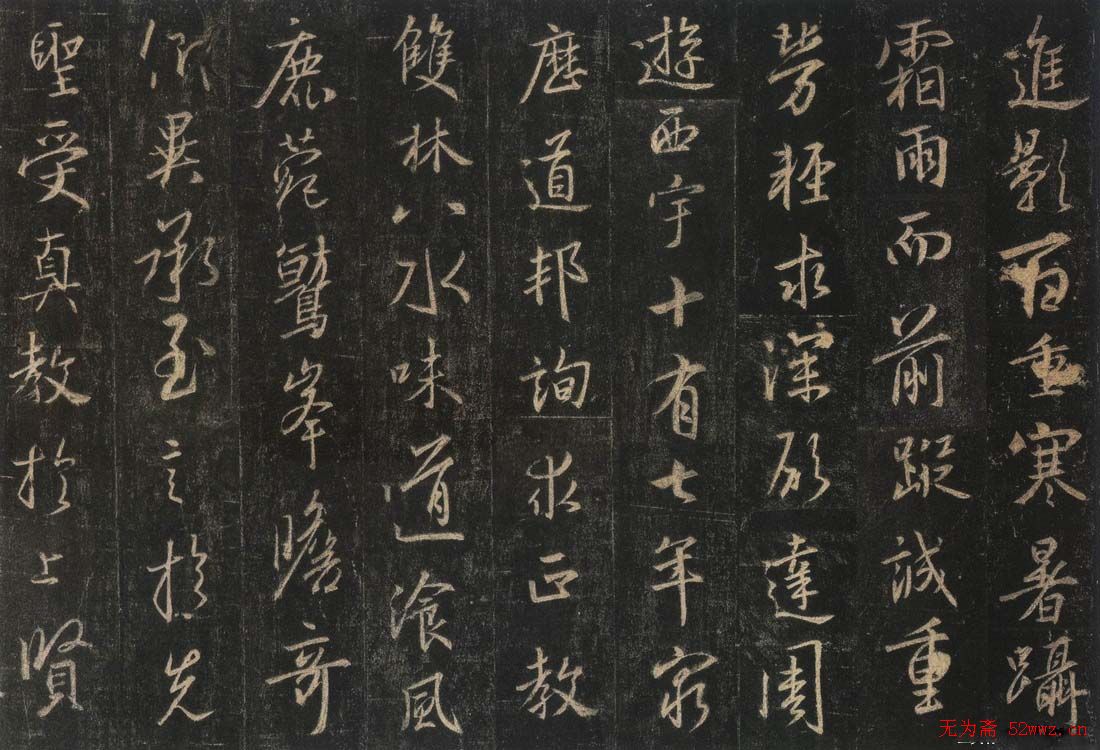 進影百重寒暑躡
霜雨而前蹤誠重
勞輕求深願達周
遊西宇十有七年窮
歷道邦詢求正教
雙林八水味道飡風
鹿菀鷲峯瞻奇
仰異承至言於先
聖受真教於上賢
无为斋 52wwz.cn